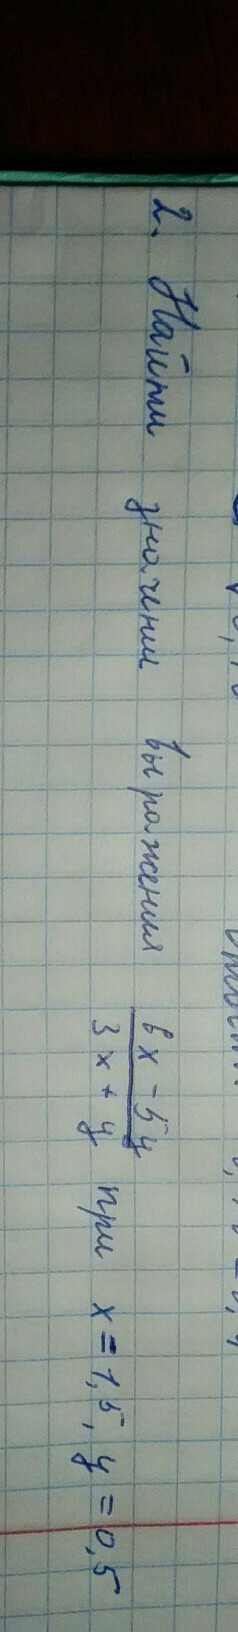 2. Найти значении выражения \frac{6x - 5y}{3x + y} при x = 1,5, y = 0,5